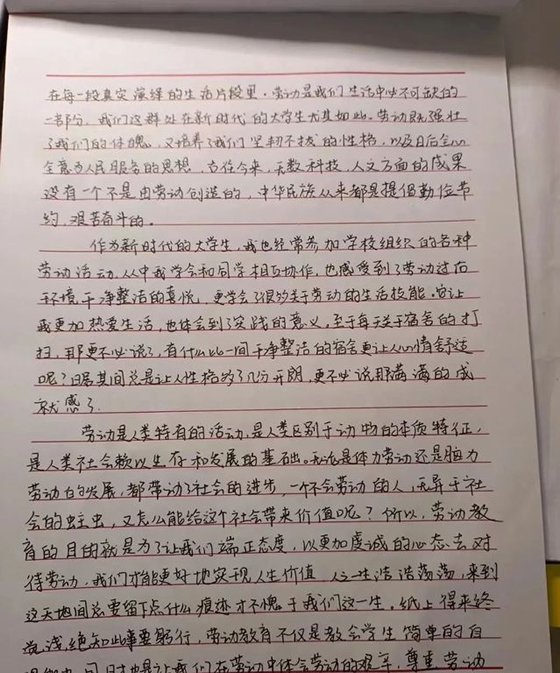 在每一段真实演绎的生活片段里，劳动是我们生活中必不可缺的
一部分，我们这群处在新时代的大学生尤其如此。劳动既强壮
了我们的体魄，又培养了我们坚韧不拔的性格，以及日后全心
全意为人民服务的思想，古往今来，无数科技，人文方面的成果
没有一个不是由劳动创造的，中华民族从来都是提倡勤俭节
约，艰苦奋斗的。
作为新时代的大学生，我也经常参加学校组织的各种
劳动活动，从中我学会和同学相互协作，也感受到了劳动过后
环境干净整洁的喜悦，更学会了很多关于劳动的生活技能。它让
我更加热爱生活，也体会到了实践的意义，至于每天关于宿舍的打
扫，那更不必说了，有什么比一间干净整洁的宿舍更让人心情舒适
呢？居其间总是让人性格多了几分开朗，更不必说那满满的成
就感了。
劳动是人类特有的活动，是人类区别于动物的本质特征，
是人类社会赖以生存和发展的基础。无论是体力劳动还是脑力
劳动的发展，都带动了社会的进步，一个不会劳动的人，无异于社
会的蛀虫，又怎么能给这个社会带来价值呢？所以，劳动教
育的目的就是为了让我们端正态度，以更加虔诚的心态去对
待劳动，我们才能更好地实现人生价值，人一生浩浩荡荡，来到
这天地间总要留下点什么痕迹才不愧于我们这一生。纸上得来终
觉浅，绝知此事要躬行，劳动教育不仅是教会学生简单的自
同时也是让我们在劳动中体会劳动的艰辛，尊重劳动